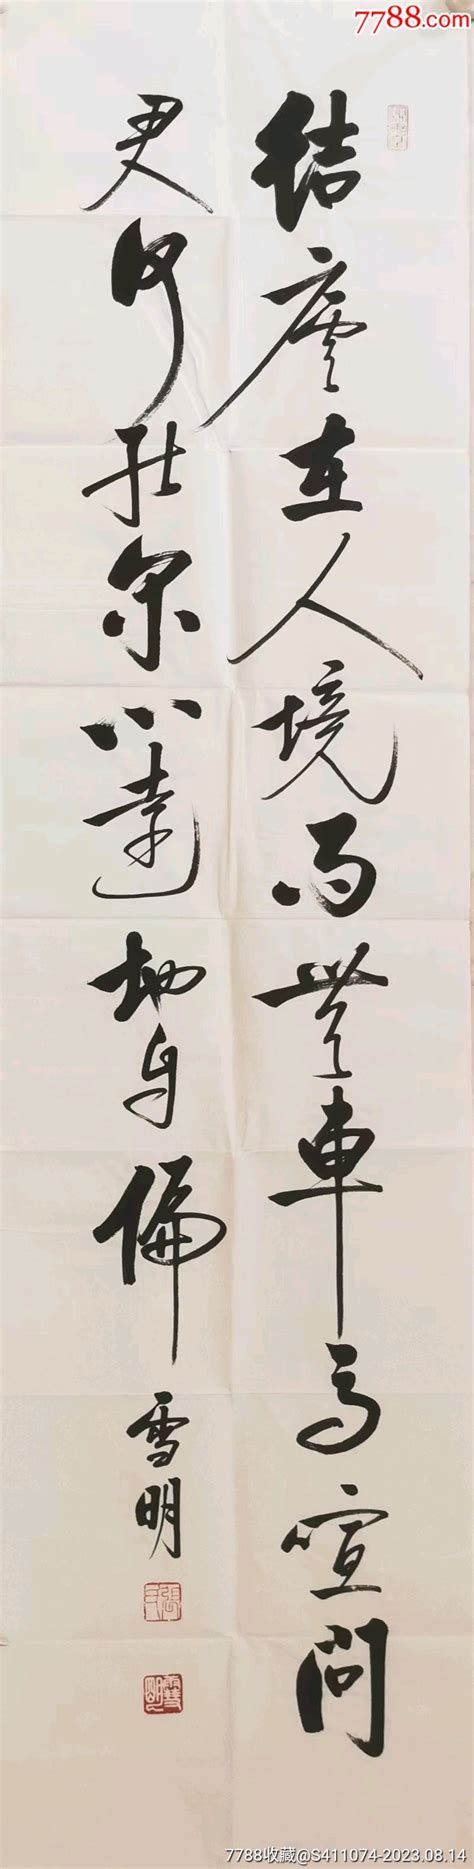 7788.com
結廬在人境而無車馬喧問
君何能爾心遠地自偏
雪明
雪明
7788收藏@S411074-2023.08.14